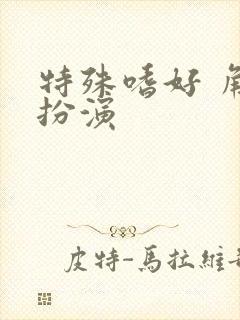 特殊嗜好 角
扮演
皮特-馬拉維